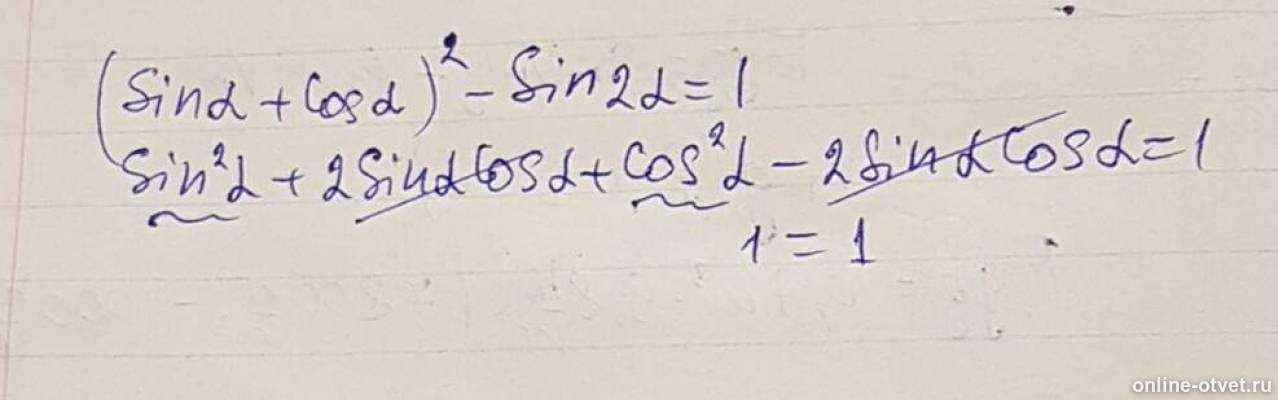 (Sinα + Cosα)² - Sin2α = 1
Sin²α + 2SinαCosα + Cos²α - 2SinαCosα = 1
1 = 1
online-otvet.ru